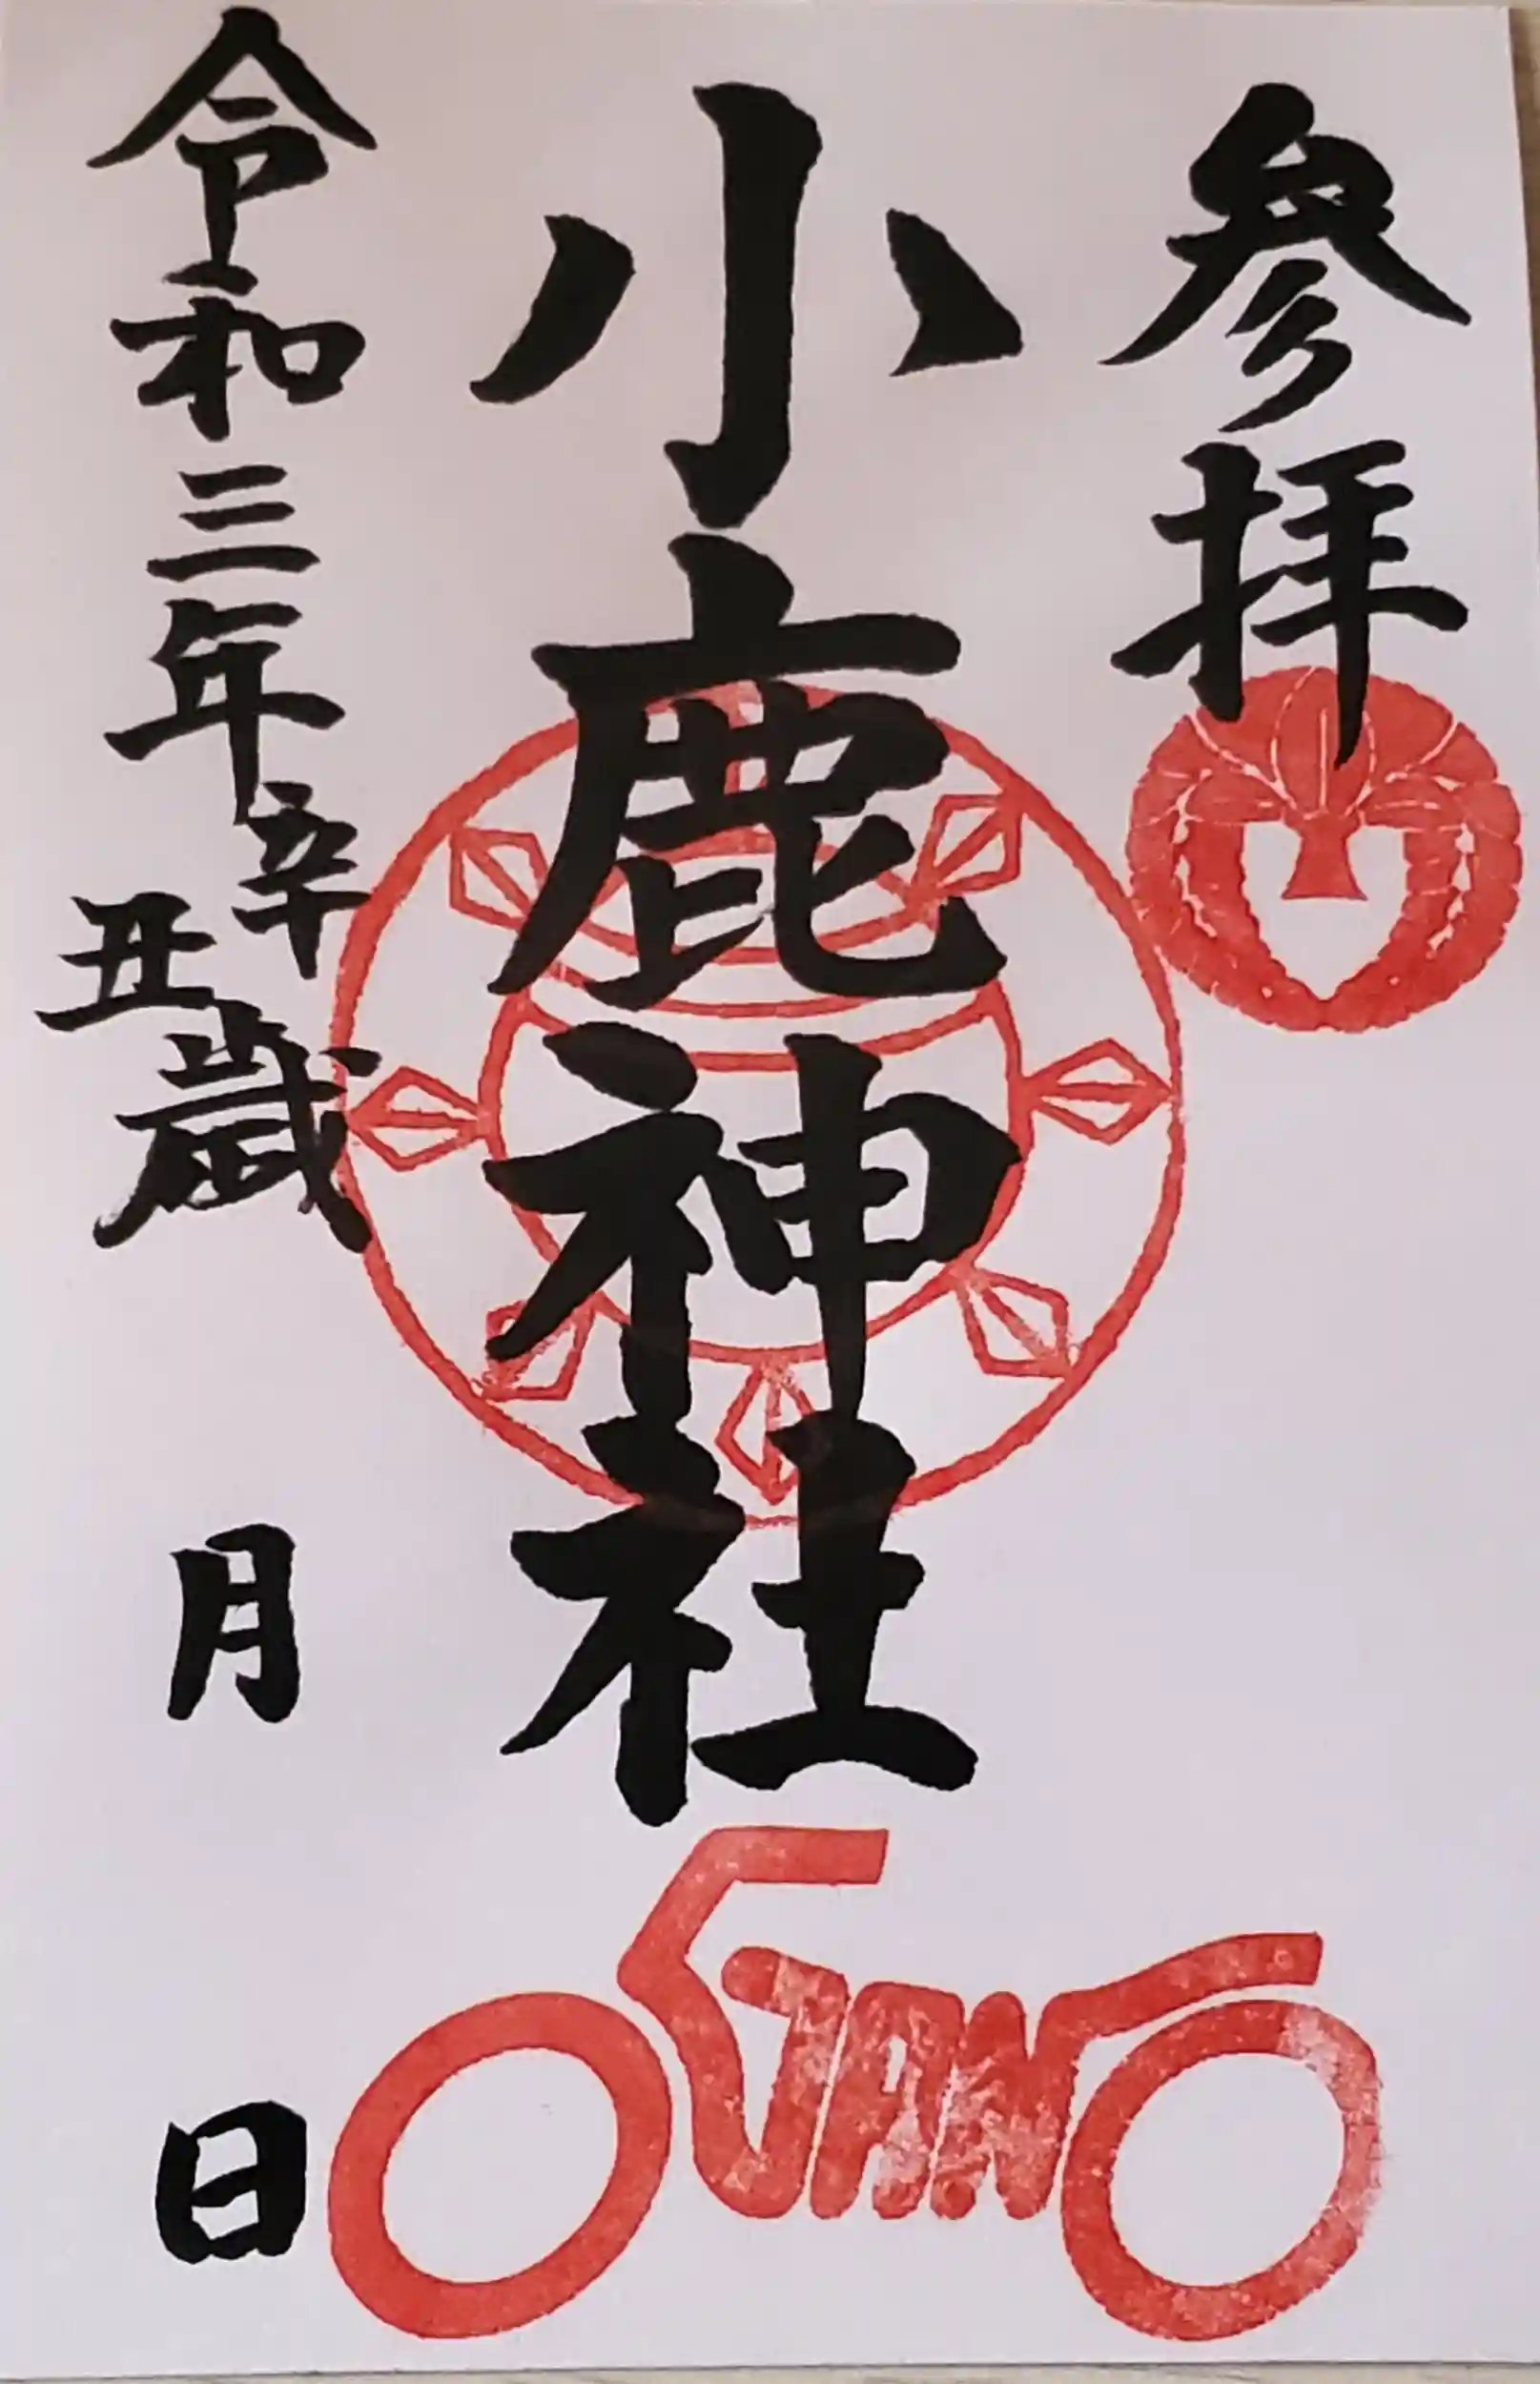 参拝
小鹿神社
令和三年辛丑歳
月
日